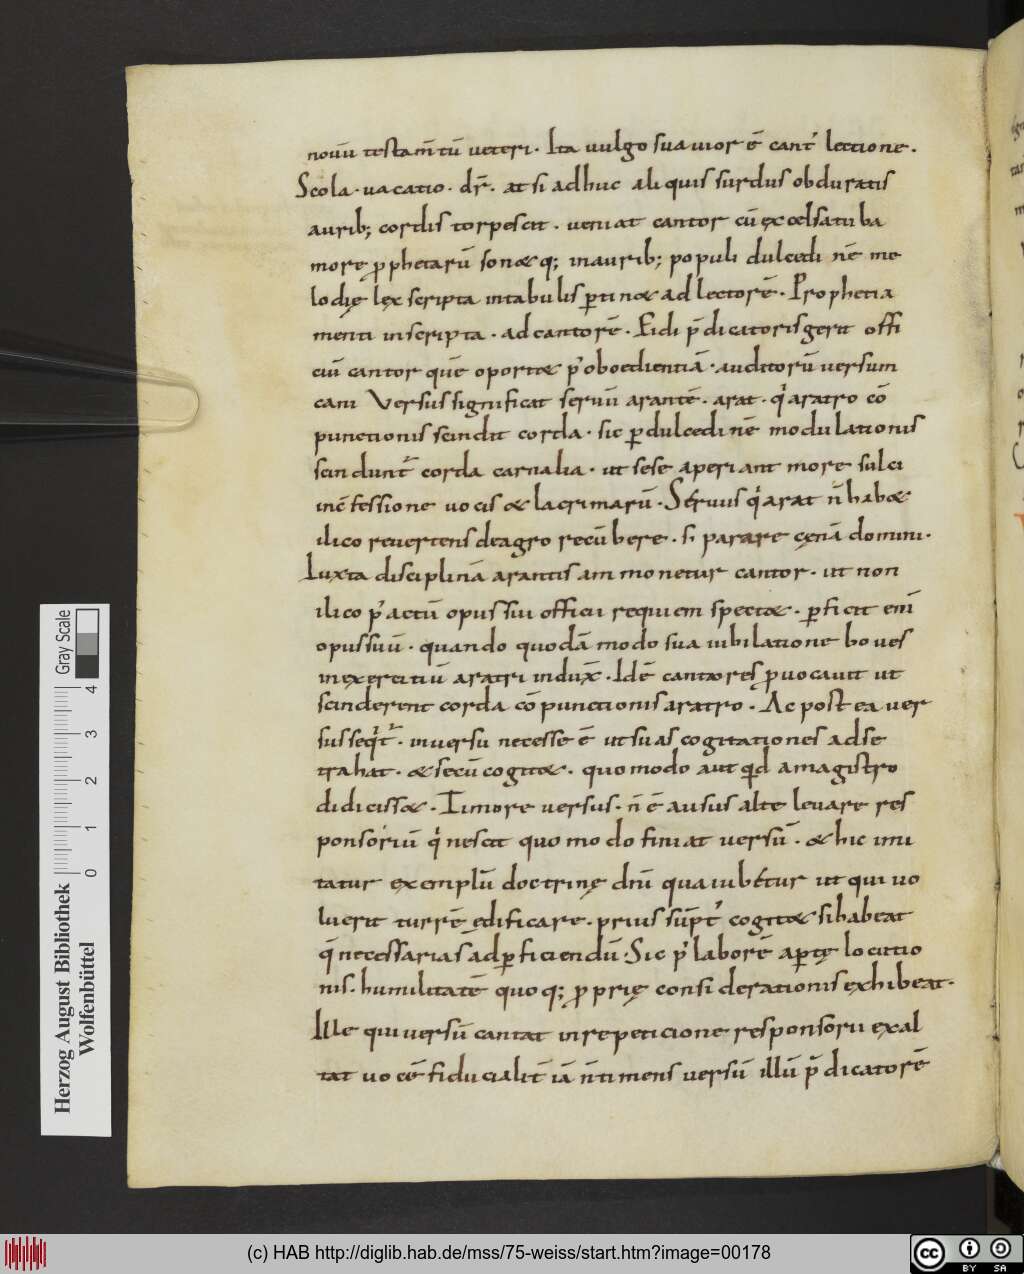 nouū testam̄tū ueteri. Ita uulgo suauior ē cant' lectione.
Scola. uacatio. dr̄. at si adhuc aliquis surdus obduratis
aurib; cordis torpescit. ueniat cantor cū excelsa tuba
more ꝓphetarū sonet q; in aurib; populi dulcedinē me
lodię lex scripta in tabulis ꝑtinet ad lectorē. Prophetia
menti inscripta. ad cantorē. Eidi p̄dicatoris gerit offi
ciū cantor quē oportet p' oboedientiā. auditorū uersum
cani Versus significat seruū arantē. arat. qi aratro cō
punctionis scindit corda. sic ꝑ dulcedinē modulationis
scindunt' corda carnalia. ut sese aperiant more sulci
in c̄fessione uocis & lacrimarū. Seruus qi arat n̄ habet
ilico reuertens de agro recūbere. s; parare cenā domini.
Iuxta disciplinā arantis ammonetur cantor. ut non
ilico p' actū opus sui officii requiem spectet. ꝑficit enī
opus suū. quando quodā modo sua iubilatione boues
in exercitiū aratri indux̄. Idē cantores ꝓuocauit ut
scinderent corda cōpunctionis aratro. Ac postea uer
sus seqt'. in uersu necesse ē ut suas cogitationes ad se
trahat. & secū cogitet. quomodo aut qd a magistro
didicisset. Timore uersus. n̄ ē ausus alte leuare res
ponsoriū qi nescit quomodo finiat uersū. & hic imi
tatur exemplū doctrinę dn̄i qua iubetur ut qui uo
luerit turrē ędificare. prius sūpt' cogitet si habeat
q̄ necessaria s ad ꝑficiendū. Sic p' laborē aꝑtę locutio
nis. humilitatē quoq; ꝓprię considerationis exhibeat.
Ille qui uersū cantat in repeticione responsorii exal
tat uocē fiducialit̄ iā n̄ timens uersū illū p̄dicatorē
Herzog August Bibliothek
Wolfenbüttel
0 1 2 3 4
Gray Scale
(c) HAB http://diglib.hab.de/mss/75-weiss/start.htm?image=00178
cc BY SA